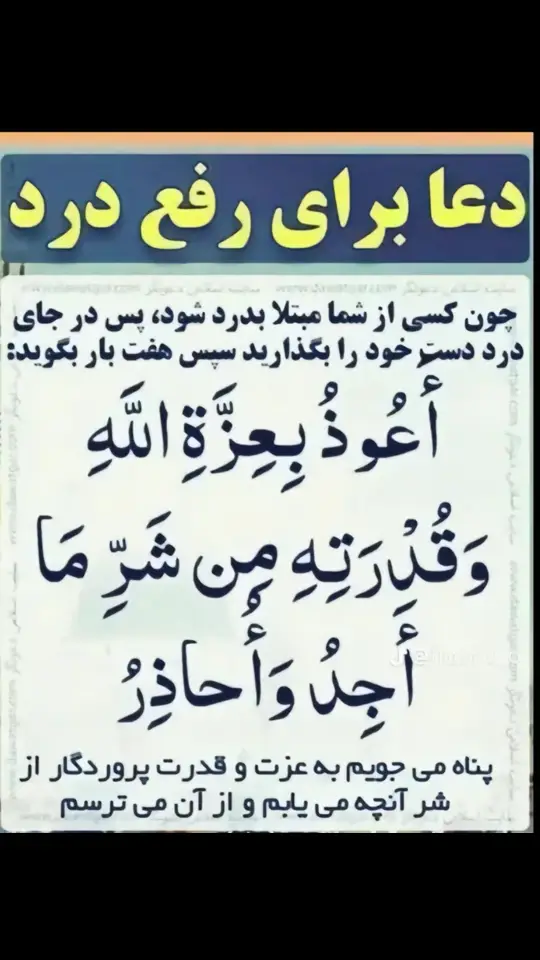 دعا برای رفع درد
چون کسی از شما مبتلا بدرد شود، پس در جای
درد دست خود را بگذارید سپس هفت بار بگوید:
أَعُوذُ بِعِزَّةِ اللَّهِ
وَقُدْرَتِهِ مِن شَرِّ مَا
أَجِدُ وَأُحاذِرُ
پناه می جویم به عزت و قدرت پروردگار از
شر آنچه می یابم و از آن می ترسم